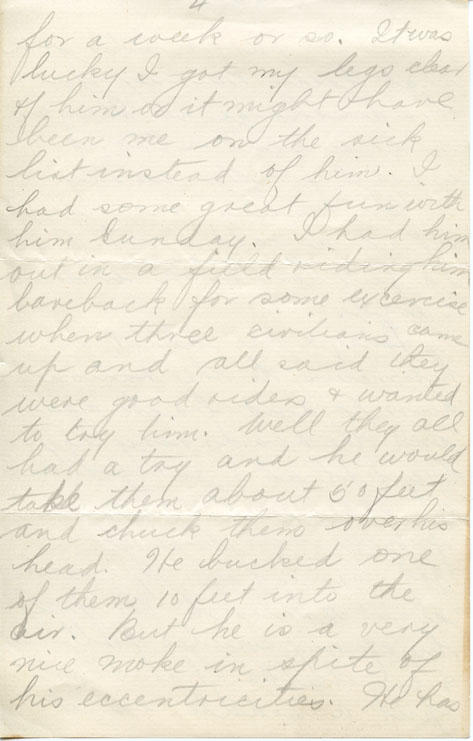 4
for a week or so. It was
lucky I got my legs clear
of him or it might have
been me on the sick
list instead of him. I
had some great fun with
him Sunday. I had him
out in a field riding him
bareback for some exercise
when three civilians came
up and all said they
were good riders & wanted
to try him. Well they all
had a try and he would
take them about 50 feet
and chuck them over his
head. He bucked one
of them 10 feet into the
air. But he is a very
nice moke in spite of
his eccentricities. He has